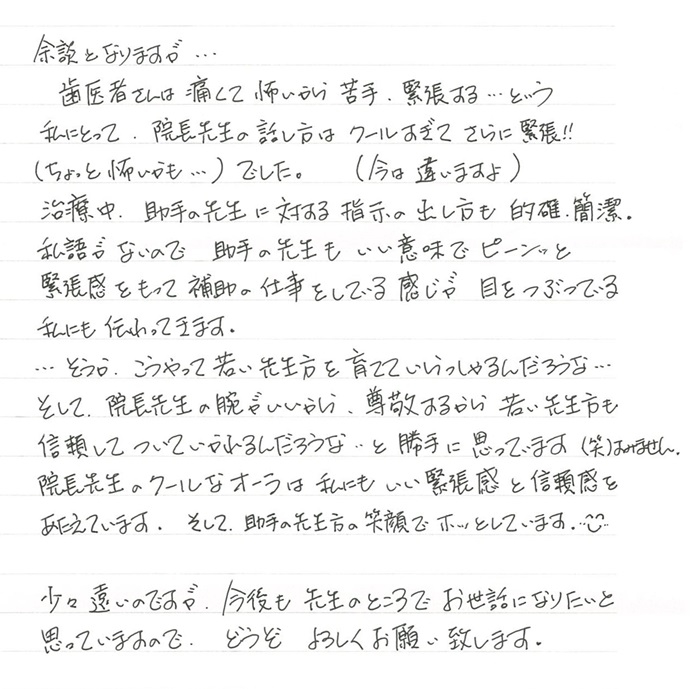 余談となりますが…
歯医者さんは 痛くて 怖いから 苦手、緊張する…という
私にとって、院長先生の話し方は クールすぎて さらに 緊張!!
(ちょっと怖いかも…)でした。 (今は 違いますよ)
治療中、助手の先生に対する 指示の出し方も 的確、簡潔。
私語が ないので 助手の先生も いい意味で ピーンッと
緊張感をもって 補助の仕事をしている 感じが 目をつぶっている
私にも 伝わってきます。
…そうか、こうやって 若い先生方を 育てていらっしゃるんだろうな…
そして、院長先生の腕がいいから、尊敬するから 若い先生方も
信頼して ついていかれるんだろうな…と 勝手に 思ってます (笑)すみません。
院長先生のクールなオーラは 私にも いい緊張感と信頼感を
あたえています。 そして、助手の先生方の笑顔で ホッとしています。
少々 遠いのですが、今後も 先生のところで お世話になりたいと
思っていますので、 どうぞ よろしくお願い致します。